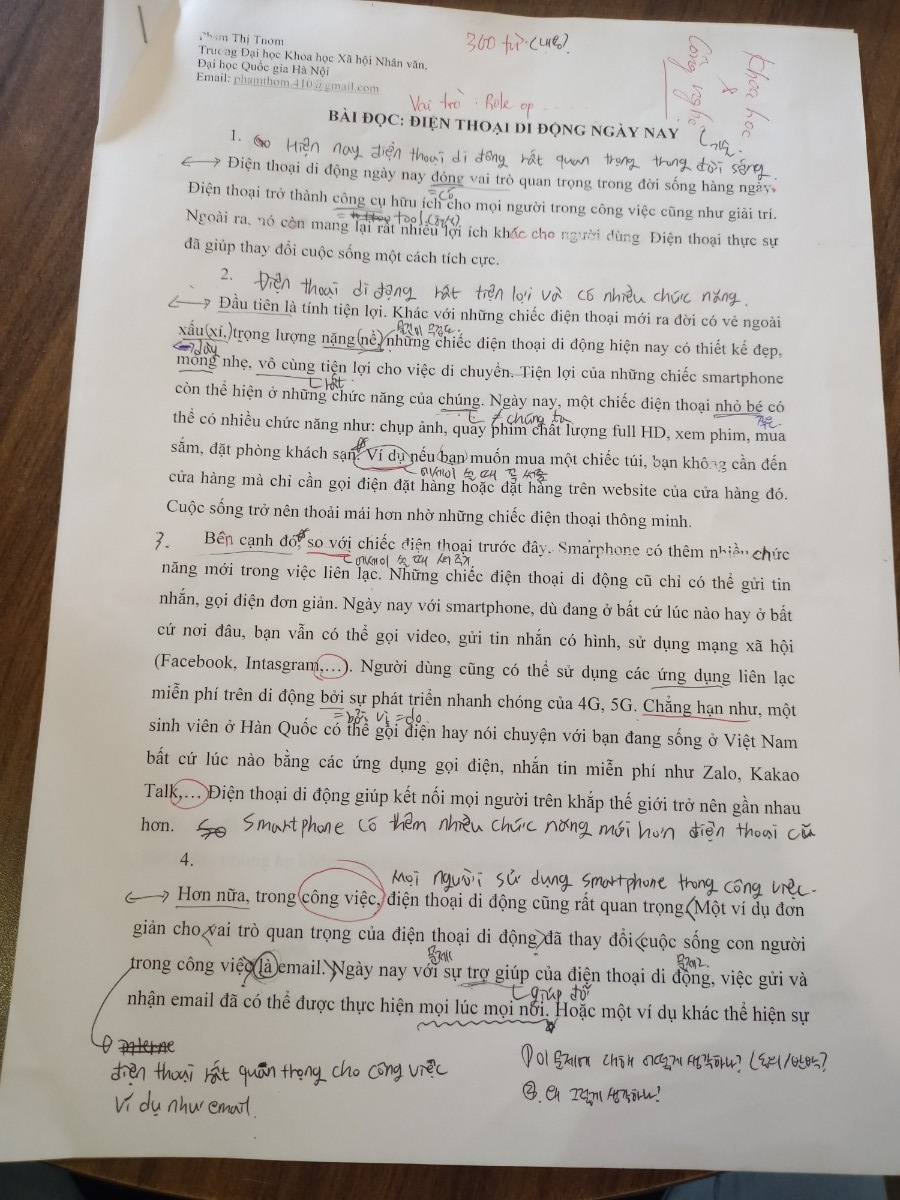 Phạm Thị Thơm
Trường Đại học Khoa học Xã hội Nhân văn,
Đại học Quốc gia Hà Nội
Email: phamthom.410@gmail.com
360 từ (내용)?
Khoa học
&
Công nghệ
Vai trò : Role op .....
BÀI ĐỌC: ĐIỆN THOẠI DI ĐỘNG NGÀY NAY
1. Hiện nay điện thoại di động rất quan trọng trong đời sống.
Điện thoại di động ngày nay đóng vai trò quan trọng trong đời sống hàng ngày.
= có
Điện thoại trở thành công cụ hữu ích cho mọi người trong công việc cũng như giải trí.
= tool
Ngoài ra, nó còn mang lại rất nhiều lợi ích khác cho người dùng Điện thoại thực sự
đã giúp thay đổi cuộc sống một cách tích cực.
2. Điện thoại di động rất tiện lợi và có nhiều chức năng.
Đầu tiên là tính tiện lợi. Khác với những chiếc điện thoại mới ra đời có vẻ ngoài
xấu(xí,)trọng lượng nặng(nề) những chiếc điện thoại di động hiện nay có thiết kế đẹp,
dày
mỏng nhẹ, vô cùng tiện lợi cho việc di chuyển. Tiện lợi của những chiếc smartphone
rất
còn thể hiện ở những chức năng của chúng. Ngày nay, một chiếc điện thoại nhỏ bé có
≠ chúng ta
thể có nhiều chức năng như: chụp ảnh, quay phim chất lượng full HD, xem phim, mua
sắm, đặt phòng khách sạn. Ví dụ nếu bạn muốn mua một chiếc túi, bạn không cần đến
에세이 쓸 때 꼭 써줌
cửa hàng mà chỉ cần gọi điện đặt hàng hoặc đặt hàng trên website của cửa hàng đó.
Cuộc sống trở nên thoải mái hơn nhờ những chiếc điện thoại thông minh.
3. Bên cạnh đó, so với chiếc điện thoại trước đây. Smarphone có thêm nhiều chức
에세이 쓸 때 써주기
năng mới trong việc liên lạc. Những chiếc điện thoại di động cũ chỉ có thể gửi tin
nhắn, gọi điện đơn giản. Ngày nay với smartphone, dù đang ở bất cứ lúc nào hay ở bất
cứ nơi đâu, bạn vẫn có thể gọi video, gửi tin nhắn có hình, sử dụng mạng xã hội
(Facebook, Intasgram,…). Người dùng cũng có thể sử dụng các ứng dụng liên lạc
miễn phí trên di động bởi sự phát triển nhanh chóng của 4G, 5G. Chẳng hạn như, một
= bởi vì = do
sinh viên ở Hàn Quốc có thể gọi điện hay nói chuyện với bạn đang sống ở Việt Nam
bất cứ lúc nào bằng các ứng dụng gọi điện, nhắn tin miễn phí như Zalo, Kakao
Talk,… Điện thoại di động giúp kết nối mọi người trên khắp thế giới trở nên gần nhau
hơn. Smartphone có thêm nhiều chức năng mới hơn điện thoại cũ
4.
Mọi người sử dụng smartphone trong công việc.
Hơn nữa, trong công việc, điện thoại di động cũng rất quan trọng Một ví dụ đơn
giản cho vai trò quan trọng của điện thoại di động đã thay đổi cuộc sống con người
trong công việc là email. Ngày nay với sự trợ giúp của điện thoại di động, việc gửi và
giúp đỡ
nhận email đã có thể được thực hiện mọi lúc mọi nơi. Hoặc một ví dụ khác thể hiện sự
interne
điện thoại rất quan trọng cho công việc
Ví dụ như email.
① 이 문제에 대해 어떻게 생각하나? (동의/반박?)
②. 왜 그렇게 생각하나?